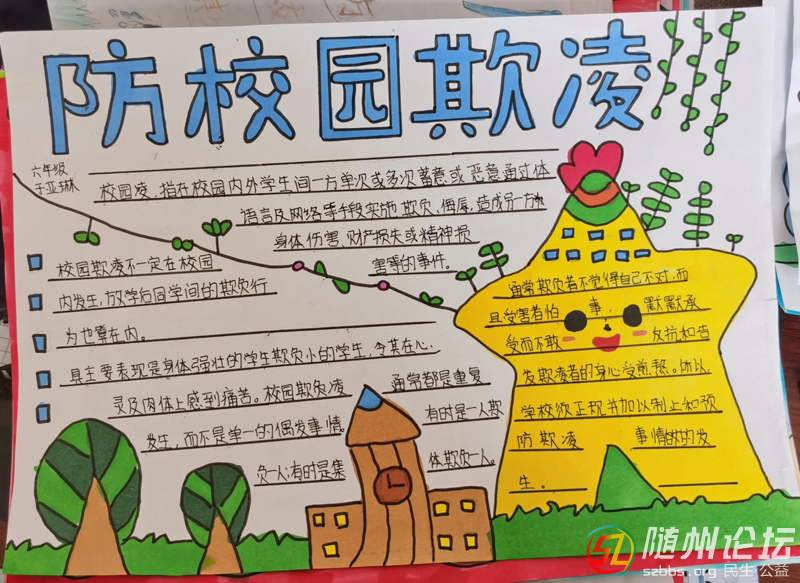 防校园欺凌
六年级
于亚琳
校园凌，指在校园内外学生间一方单次或多次蓄意或恶意通过体
语言及网络等手段实施欺负、侮辱，造成另一方
身体伤害、财产损失或精神损
害等的事件。
校园欺凌不一定在校园
内发生，放学后同学间的欺负行
为也算在内。
具主要表现是身体强壮的学生欺负小的学生，令其在心
灵及肉体上感到痛苦。校园欺负凌
通常都是重复
发生，而不是单一的偶发事情。
有时是一人欺
负一人；有时是集
体欺负一人。
通常欺负者不觉得自己不对，而
且受害者怕
事，
默默承
受而不敢
反抗和告
发欺凌者的身心受煎熬。所以
学校须正视并加以制止和预
防欺凌
事情的发
生。
随州论坛
szbbs.org 民生 公益